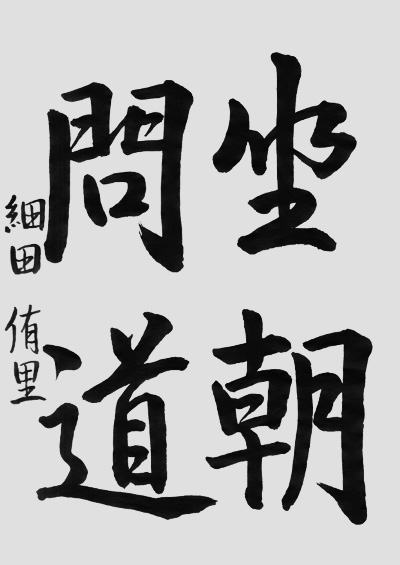 坐朝
問道
細田侑里